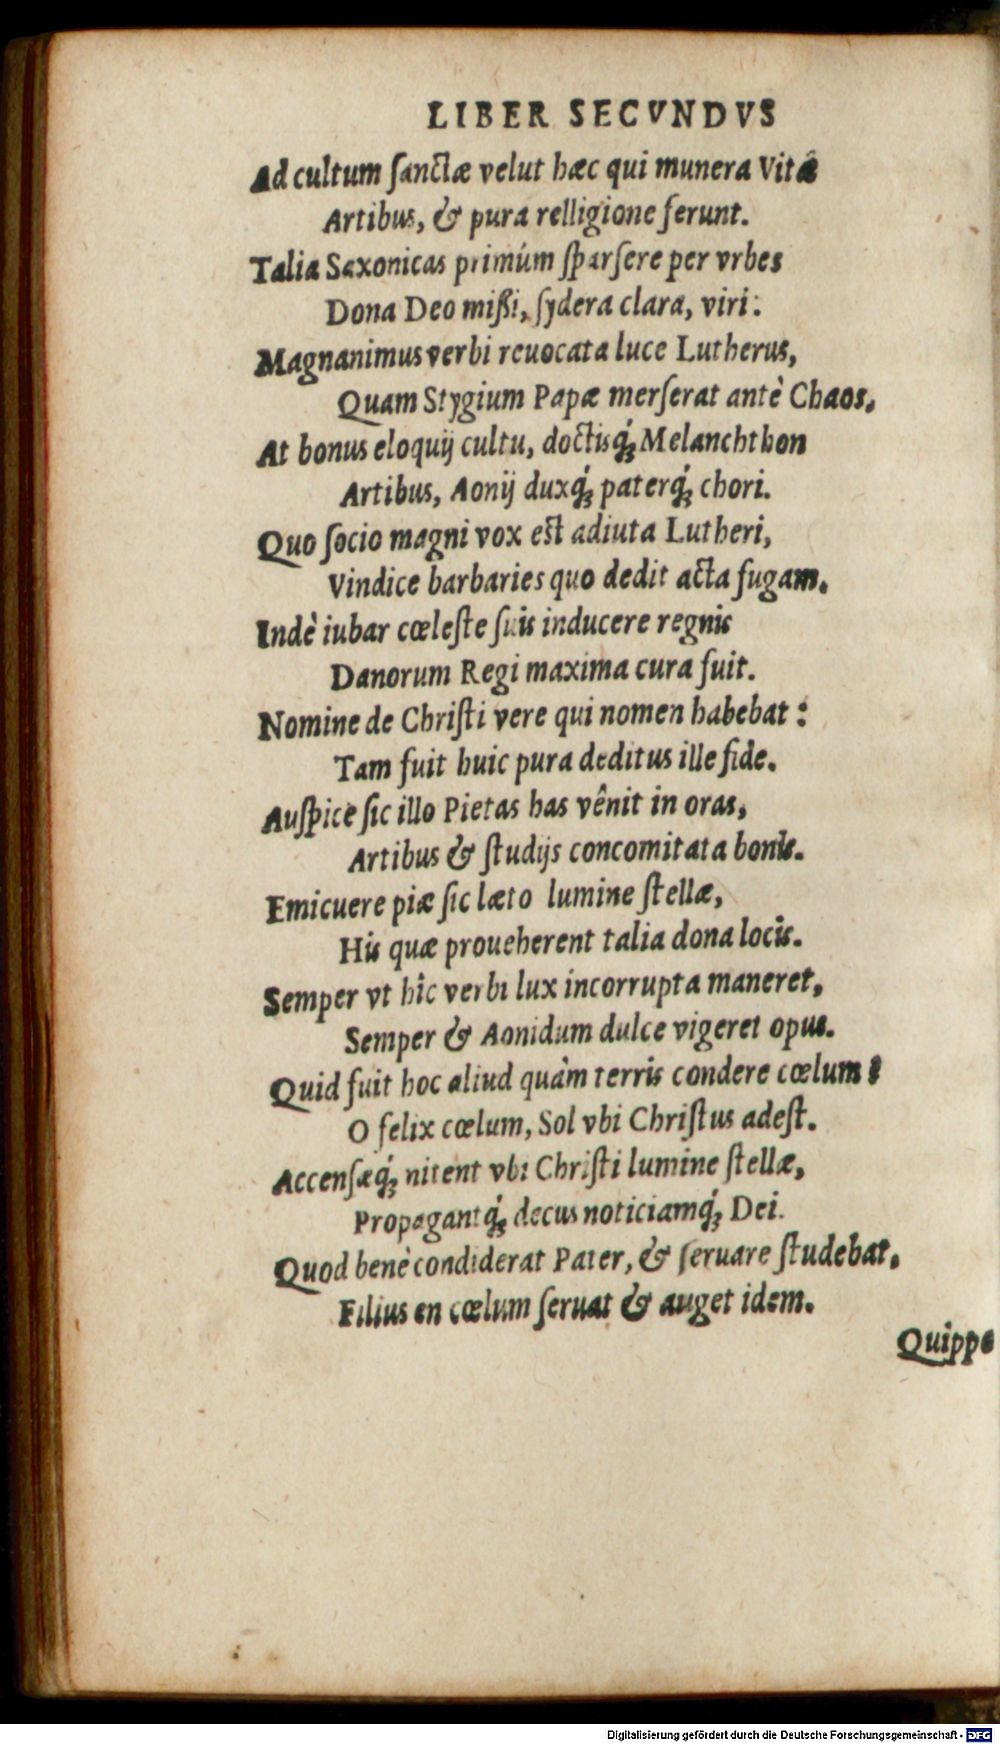 LIBER SECVNDVS
Ad cultum sanctæ velut hæc qui munera Vitæ
Artibus, & pura relligione ferunt.
Talia Saxonicas primúm sparsere per vrbes
Dona Deo missi, sydera clara, viri:
Magnanimus verbi reuocata luce Lutherus,
Quam Stygium Papæ merserat antè Chaos.
At bonus eloquij cultu, doctisq́; Melanchthon
Artibus, Aonij duxq́; paterq́; chori.
Quo socio magni vox est adiuta Lutheri,
Vindice barbaries quo dedit acta fugam.
Indè iubar cœleste suis inducere regnis
Danorum Regi maxima cura fuit.
Nomine de Christi vere qui nomen habebat:
Tam fuit huic pura deditus ille fide.
Auspice sic illo Pietas has vênit in oras,
Artibus & studijs concomitata bonis.
Emicuere piæ sic læto lumine stellæ,
His quæ proueherent talia dona locis.
Semper vt hîc verbi lux incorrupta maneret,
Semper & Aonidum dulce vigeret opus.
Quid fuit hoc aliud quàm terris condere cœlum?
O felix cœlum, Sol vbi Christus adest.
Accensæq́; nitent vbi Christi lumine stellæ,
Propagantq́; decus noticiamq́; Dei.
Quod benè condiderat Pater, & seruare studebat,
Filius en cœlum seruat & auget idem.
Quippe
Digitalisierung gefördert durch die Deutsche Forschungsgemeinschaft - DFG